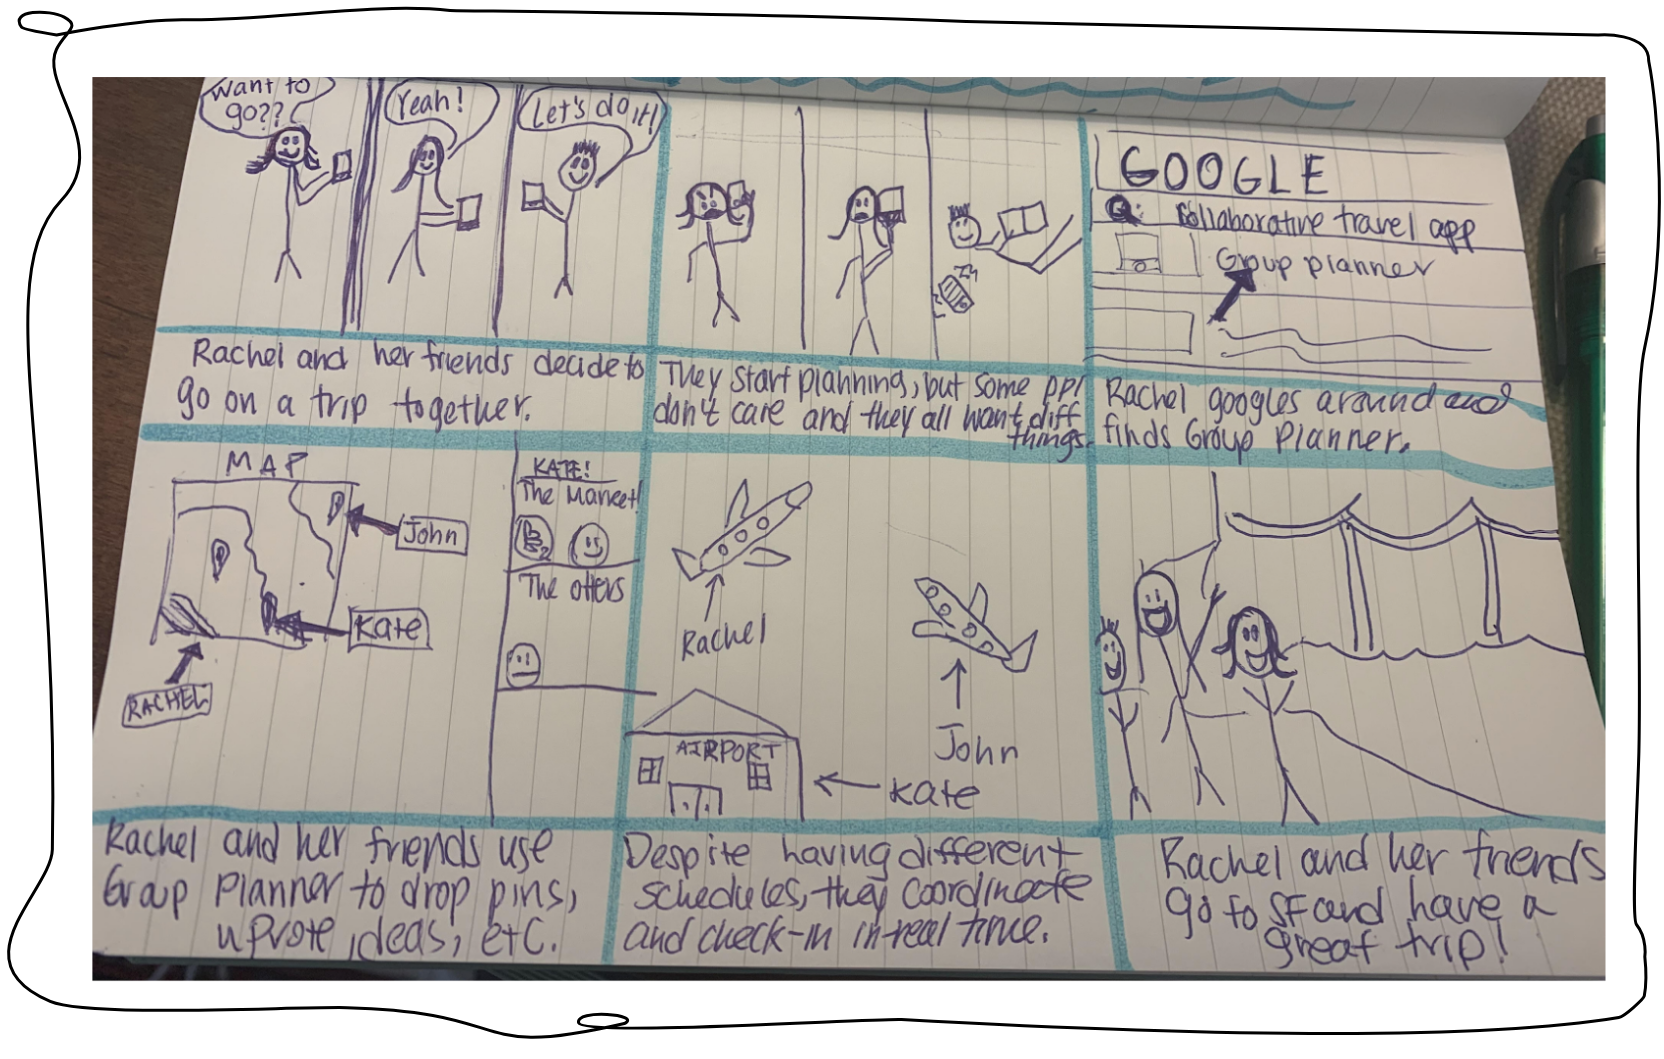 Want to
go??
Yeah!
Let's do it!
Rachel and her friends decide to
go on a trip together.
They start planning, but some ppl
don't care and they all want diff
things.
GOOGLE
Q: Collaborative travel app
Group planner
Rachel googles around and
finds Group Planner.
MAP
John
Kate
RACHEL
KATE!
The Market!
The otters
Rachel and her friends use
Group Planner to drop pins,
upvote ideas, etc.
Rachel
John
AIRPORT
Kate
Despite having different
schedules, they coordinate
and check-in in real time.
Rachel and her friends
go to SF and have a
great trip!